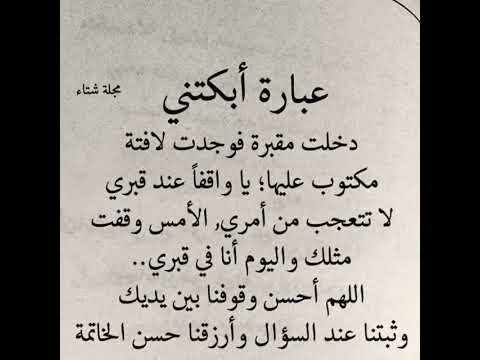 عبارة أبكتني
مجلة شتاء
دخلت مقبرة فوجدت لافتة
مكتوب عليها؛ يا واقفاً عند قبري
لا تتعجب من أمري, الأمس وقفت
مثلك واليوم أنا في قبري..
اللهم أحسن وقوفنا بين يديك
وثبتنا عند السؤال وأرزقنا حسن الخاتمة